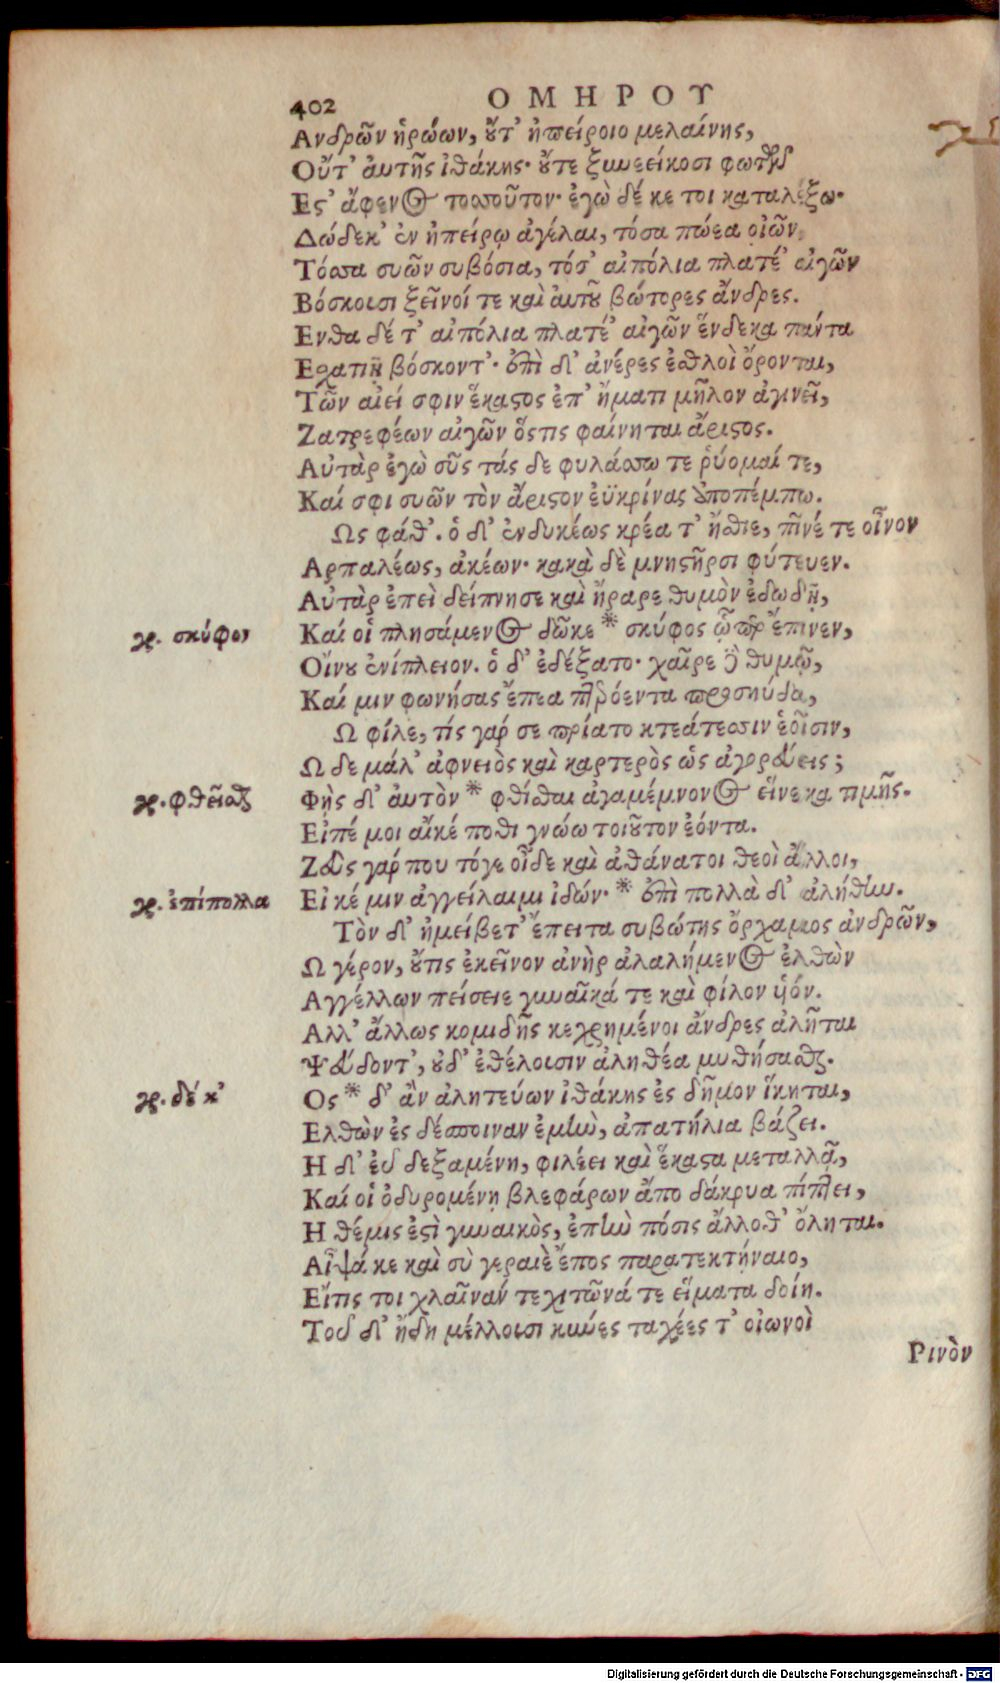 402 ΟΜΗΡΟΥ
Ανδρῶν ἡρώων, οὔτ' ἠπείροιο μελαίνης,
Οὔτ' αὐτῆς ἰθάκης· οὔτε ξυνεείκοσι φωτῶν
Ες' ἄφενος τοσοῦτον· ἐγὼ δέ κε τοι καταλέξω·
Δώδεκ' ἐν ἠπείρῳ ἀγέλαι, τόσα πώεα οἰῶν,
Τόσσα συῶν συβόσια, τόσ' αἰπόλια πλατέ' αἰγῶν
Βόσκουσι ξεῖνοί τε καὶ αὐτοῦ βώτορες ἄνδρες.
Ενθα δέ τ' αἰπόλια πλατέ' αἰγῶν ἕνδεκα πάντα
Εσχατιῇ βόσκοντ'· ἐπὶ δ' ἀνέρες ἐσθλοὶ ὄρονται,
Τῶν αἰεί σφιν ἕκαστος ἐπ' ἤματι μῆλον ἀγινεῖ,
Ζατρεφέων αἰγῶν ὅστις φαίνηται ἄριστος.
Αὐτὰρ ἐγὼ σῦς τάς δε φυλάσσω τε ῥύομαί τε,
Καί σφι συῶν τὸν ἄριστον ἐϋκρίνας ἀποπέμπω.
Ως φάθ'. ὁ δ' ἐνδυκέως κρέα τ' ἤσθιε, πῖνέ τε οἶνον
Αρπαλέως, ἀκέων· κακὰ δὲ μνηστῆρσι φύτευεν.
Αὐτὰρ ἐπεὶ δείπνησε καὶ ἤραρε θυμὸν ἐδωδῇ,
γρ. σκύφον Καί οἱ πλησάμενος δῶκε * σκύφος ᾧπερ ἔπινεν,
Οἴνου ἐνίπλειον. ὁ δ' ἐδέξατο· χαῖρε δὲ θυμῷ,
Καί μιν φωνήσας ἔπεα πτερόεντα προσηύδα,
Ω φίλε, τίς γάρ σε πρίατο κτεάτεσσιν ἑοῖσιν,
Ω δε μάλ' ἀφνειὸς καὶ καρτερὸς ὡς ἀγορεύεις;
γρ. φθεῖσθαι Φῂς δ' αὐτὸν * φθίσθαι ἀγαμέμνονος εἵνεκα τιμῆς.
Εἰπέ μοι αἴκέ ποθι γνώω τοιοῦτον ἐόντα.
Ζεὺς γάρ που τόγε οἶδε καὶ ἀθάνατοι θεοὶ ἄλλοι,
γρ. ἐπίπολλα Εἰ κέ μιν ἀγγείλαιμι ἰδών· * ἐπὶ πολλὰ δ' ἀλήθην.
Τὸν δ' ἠμείβετ' ἔπειτα συβώτης ὄρχαμος ἀνδρῶν,
Ω γέρον, οὔτις ἐκεῖνον ἀνὴρ ἀλαλήμενος ἐλθὼν
Αγγέλλων πείσειε γυναῖκά τε καὶ φίλον υἱόν.
Αλλ' ἄλλως κομιδῆς κεχρημένοι ἄνδρες ἀλῆται
Ψεύδοντ', οὐδ' ἐθέλουσιν ἀληθέα μυθήσασθαι.
γρ. δέ κ' Ος * δ' ἂν ἀλητεύων ἰθάκης ἐς δῆμον ἵκηται,
Ελθὼν ἐς δέσποιναν ἐμὴν, ἀπατήλια βάζει.
Η δ' εὖ δεξαμένη, φιλέει καὶ ἕκαστα μεταλλᾷ,
Καί οἱ ὀδυρομένη βλεφάρων ἄπο δάκρυα πίπτει,
Η θέμις ἐστὶ γυναικὸς, ἐπὴν πόσις ἄλλοθ' ὄληται.
Αἶψά κε καὶ σὺ γεραιὲ ἔπος παρατεκτήναιο,
Εἴτις τοι χλαῖνάν τε χιτῶνά τε εἵματα δοίη.
Τοῦ δ' ἤδη μέλλουσι κύνες ταχέες τ' οἰωνοὶ
Ρινὸν
Digitalisierung gefördert durch die Deutsche Forschungsgemeinschaft - DFG